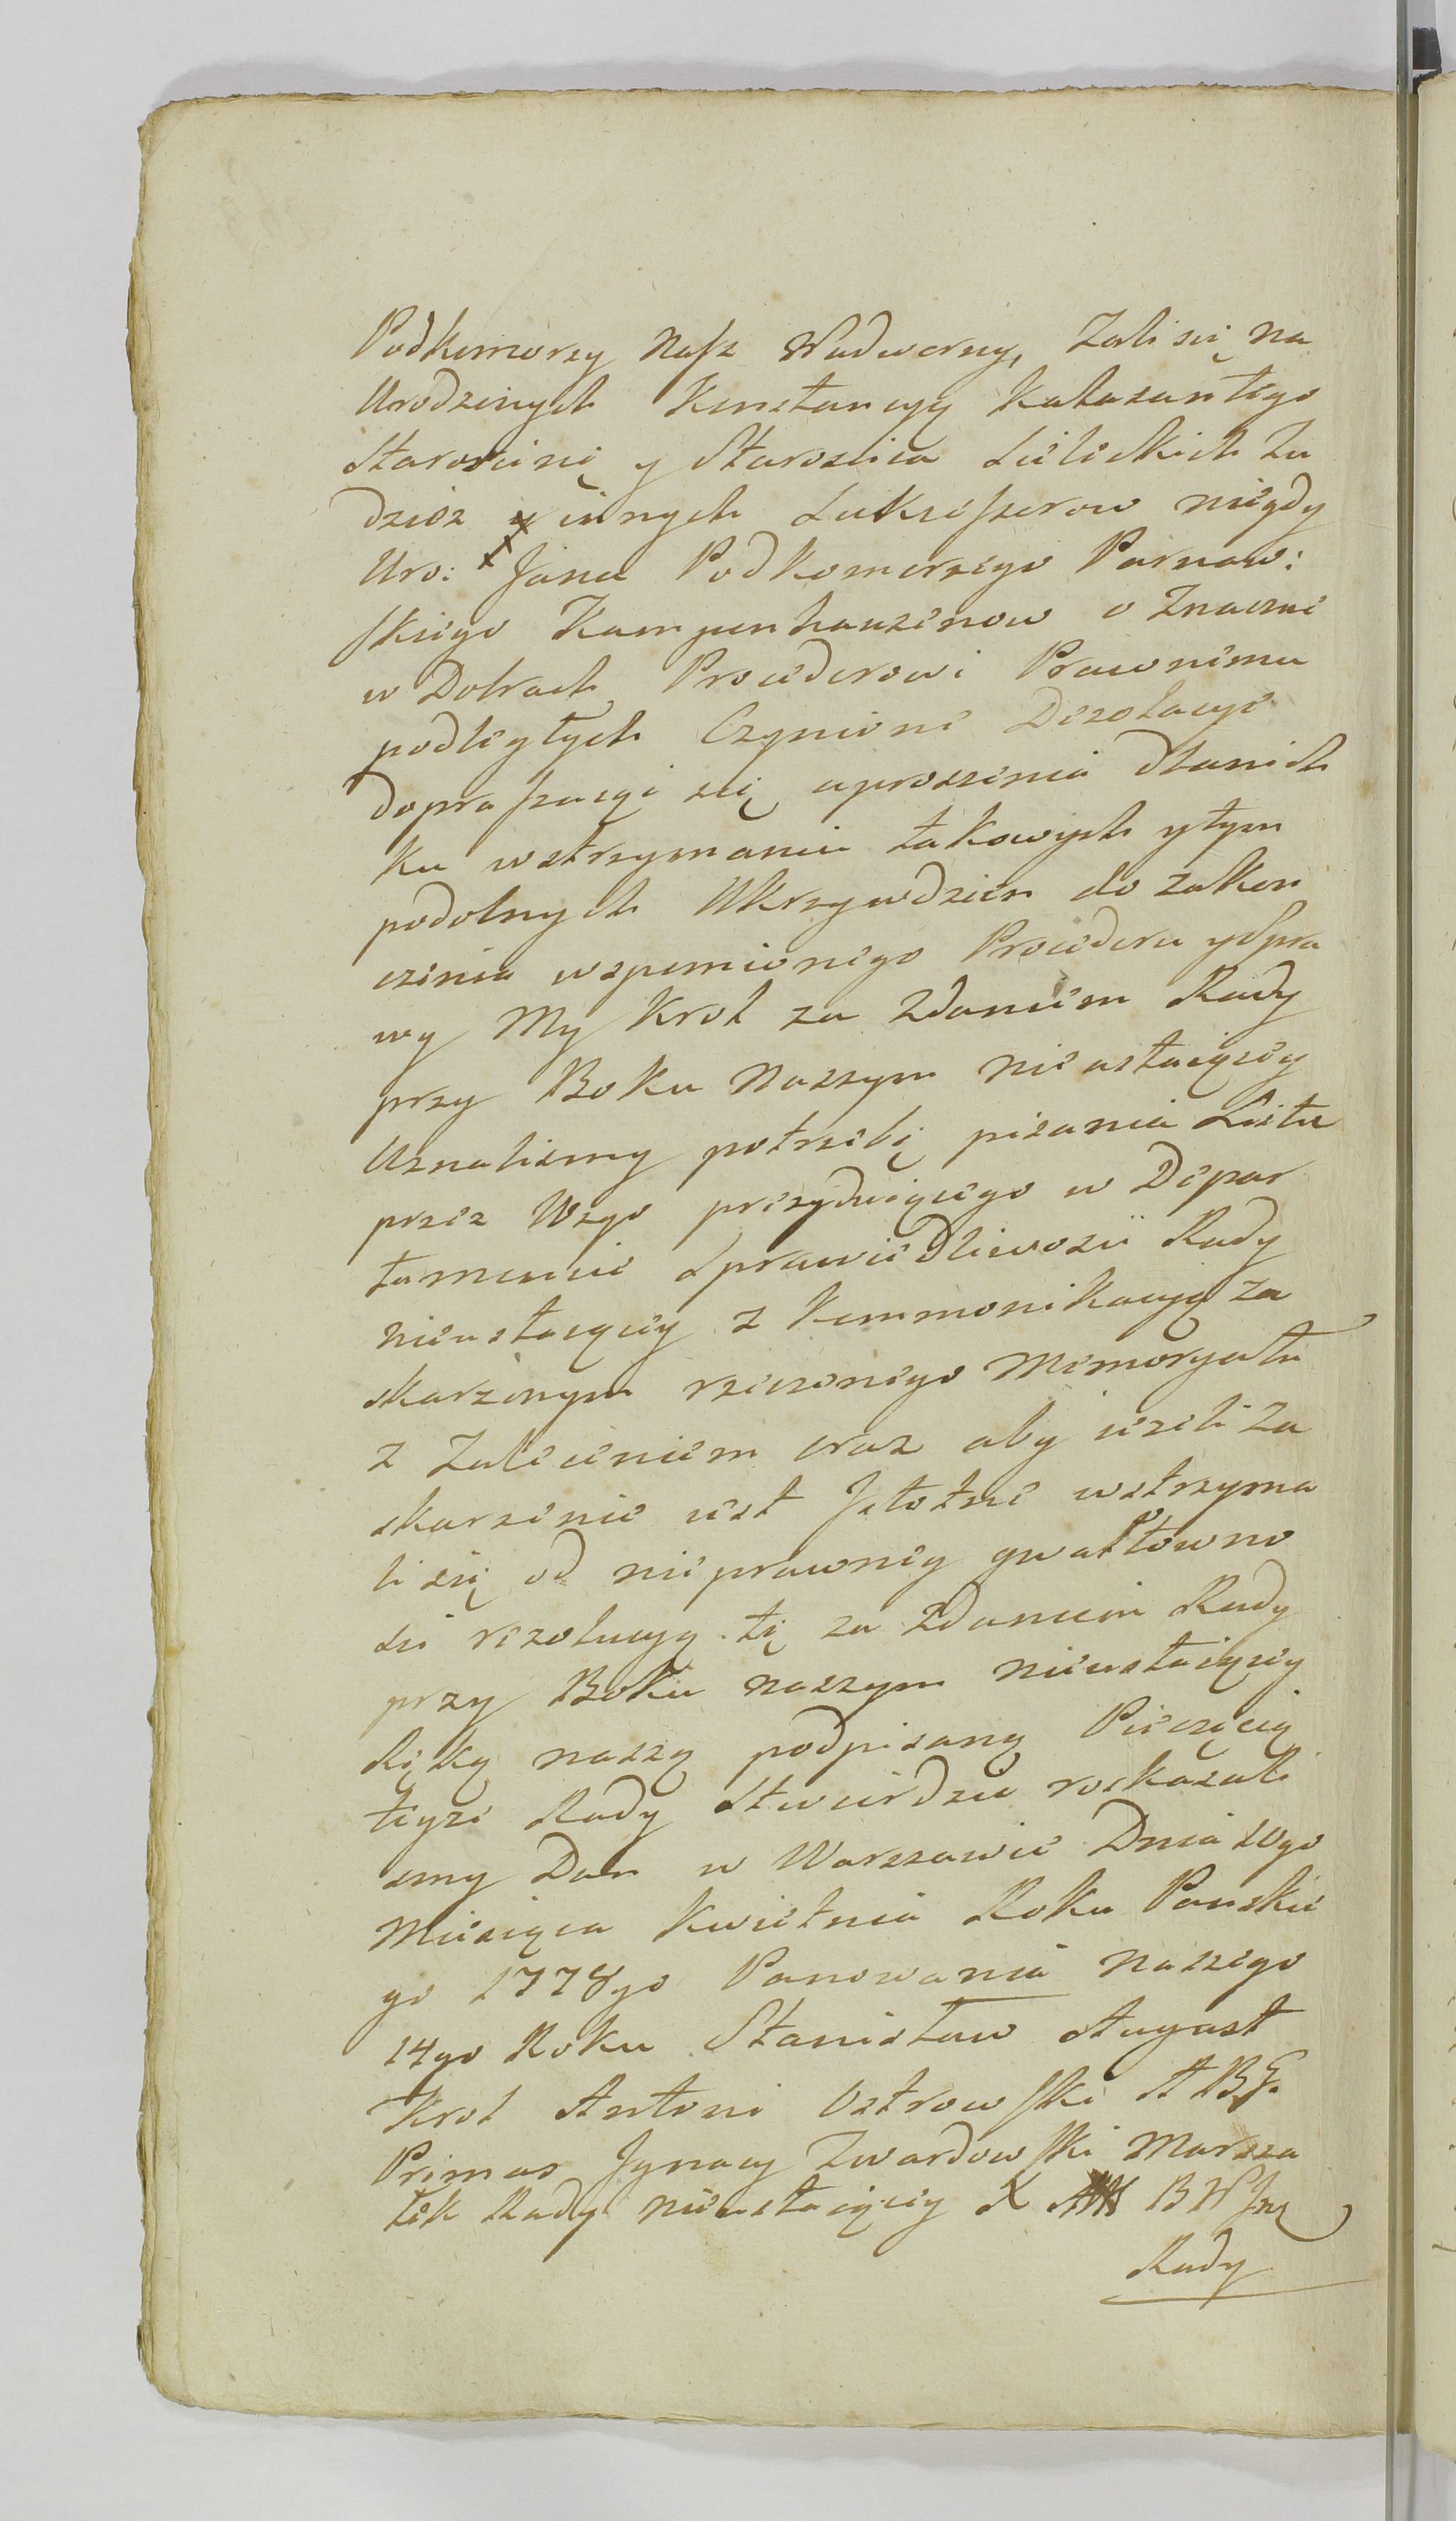 Podkomorzy Nasz Nadworny, Zali się na
Urodzonych Konstancyą Kalasantego
Starościnę y Starościca Lielickich Tu
dzież y innych Sukcessorow niegdy
Uro: Jana Podkomorzego Parnaw:
skiego Kampenhauzenow o Znaczne
w Dobrach Procederowi Prawnemu
podległych Czynione Dezolacye
dopraszaiąc się uproszenia dlanich
Ku wstrzymaniu takowych ytym
podobnych Ukrzywdzien do zakon
czenia wspomionego Procederu ySpra
wy My Krol za Zdaniem Rady
przy Boku Naszym nieustaiącey
Uznalismy potrzebę pisania Listu
przez Wzgo prezyduiącego w Depar
tamencie Sprawiedliwosci Rady
nieustaiącey z Kommonikacyą za
skarżonym rzeczonego Memoryału
z Zaleceniem oraz aby ieżeli za
skarzenie iest Istotne wstrzyma
li się od nieprawney gwałtowno
sci rezolucyą tę za Zdaniem Rady
przy Boku naszym nieustaiącey
Ręką naszą podpisaną Pieczęcią
teyże Rady stwierdzić roskazali
smy Dan w Warszawie Dnia 10go
Miesiąca Kwietnia Roku Panskie
go 1778go Panowania naszego
14go Roku Stanisław August
Krol Antoni Ostrowski A B G.
Primas Ignacy Twardowski Marsza
łek Rady nieustaiącey X B W
Rady